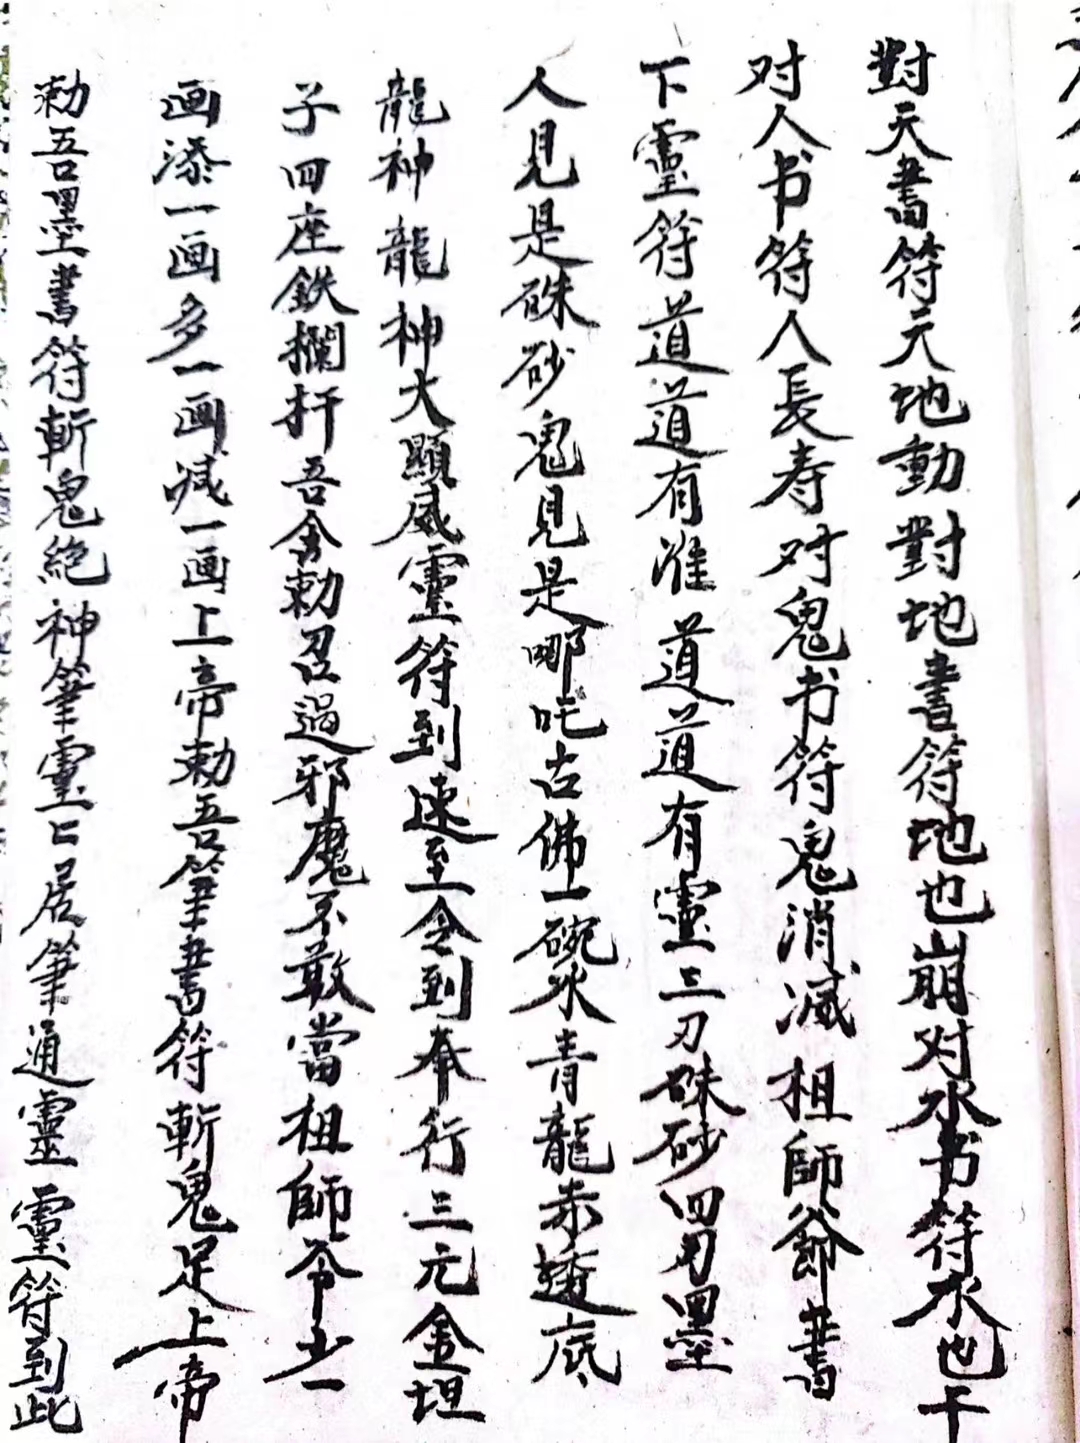 對天書符天地動對地書符地也崩对水书符水也干
对人书符人長寿对鬼书符鬼消减祖師爺書
下靈符道道有准道道有靈三刃硃砂四刃墨
人見是硃砂鬼見是哪吒古佛一碗水青龍赤透底
龍神龍神大顯威靈符到速至令到奉行三元金坦
子四座鉄攔扞吾含勅召過邪魔不敢當祖師爷少一
画添一画多一画减一画上帝勅吾筆書符斬鬼足上帝
勅吾墨書符斬鬼絶神筆靈上居筆通靈靈符到此